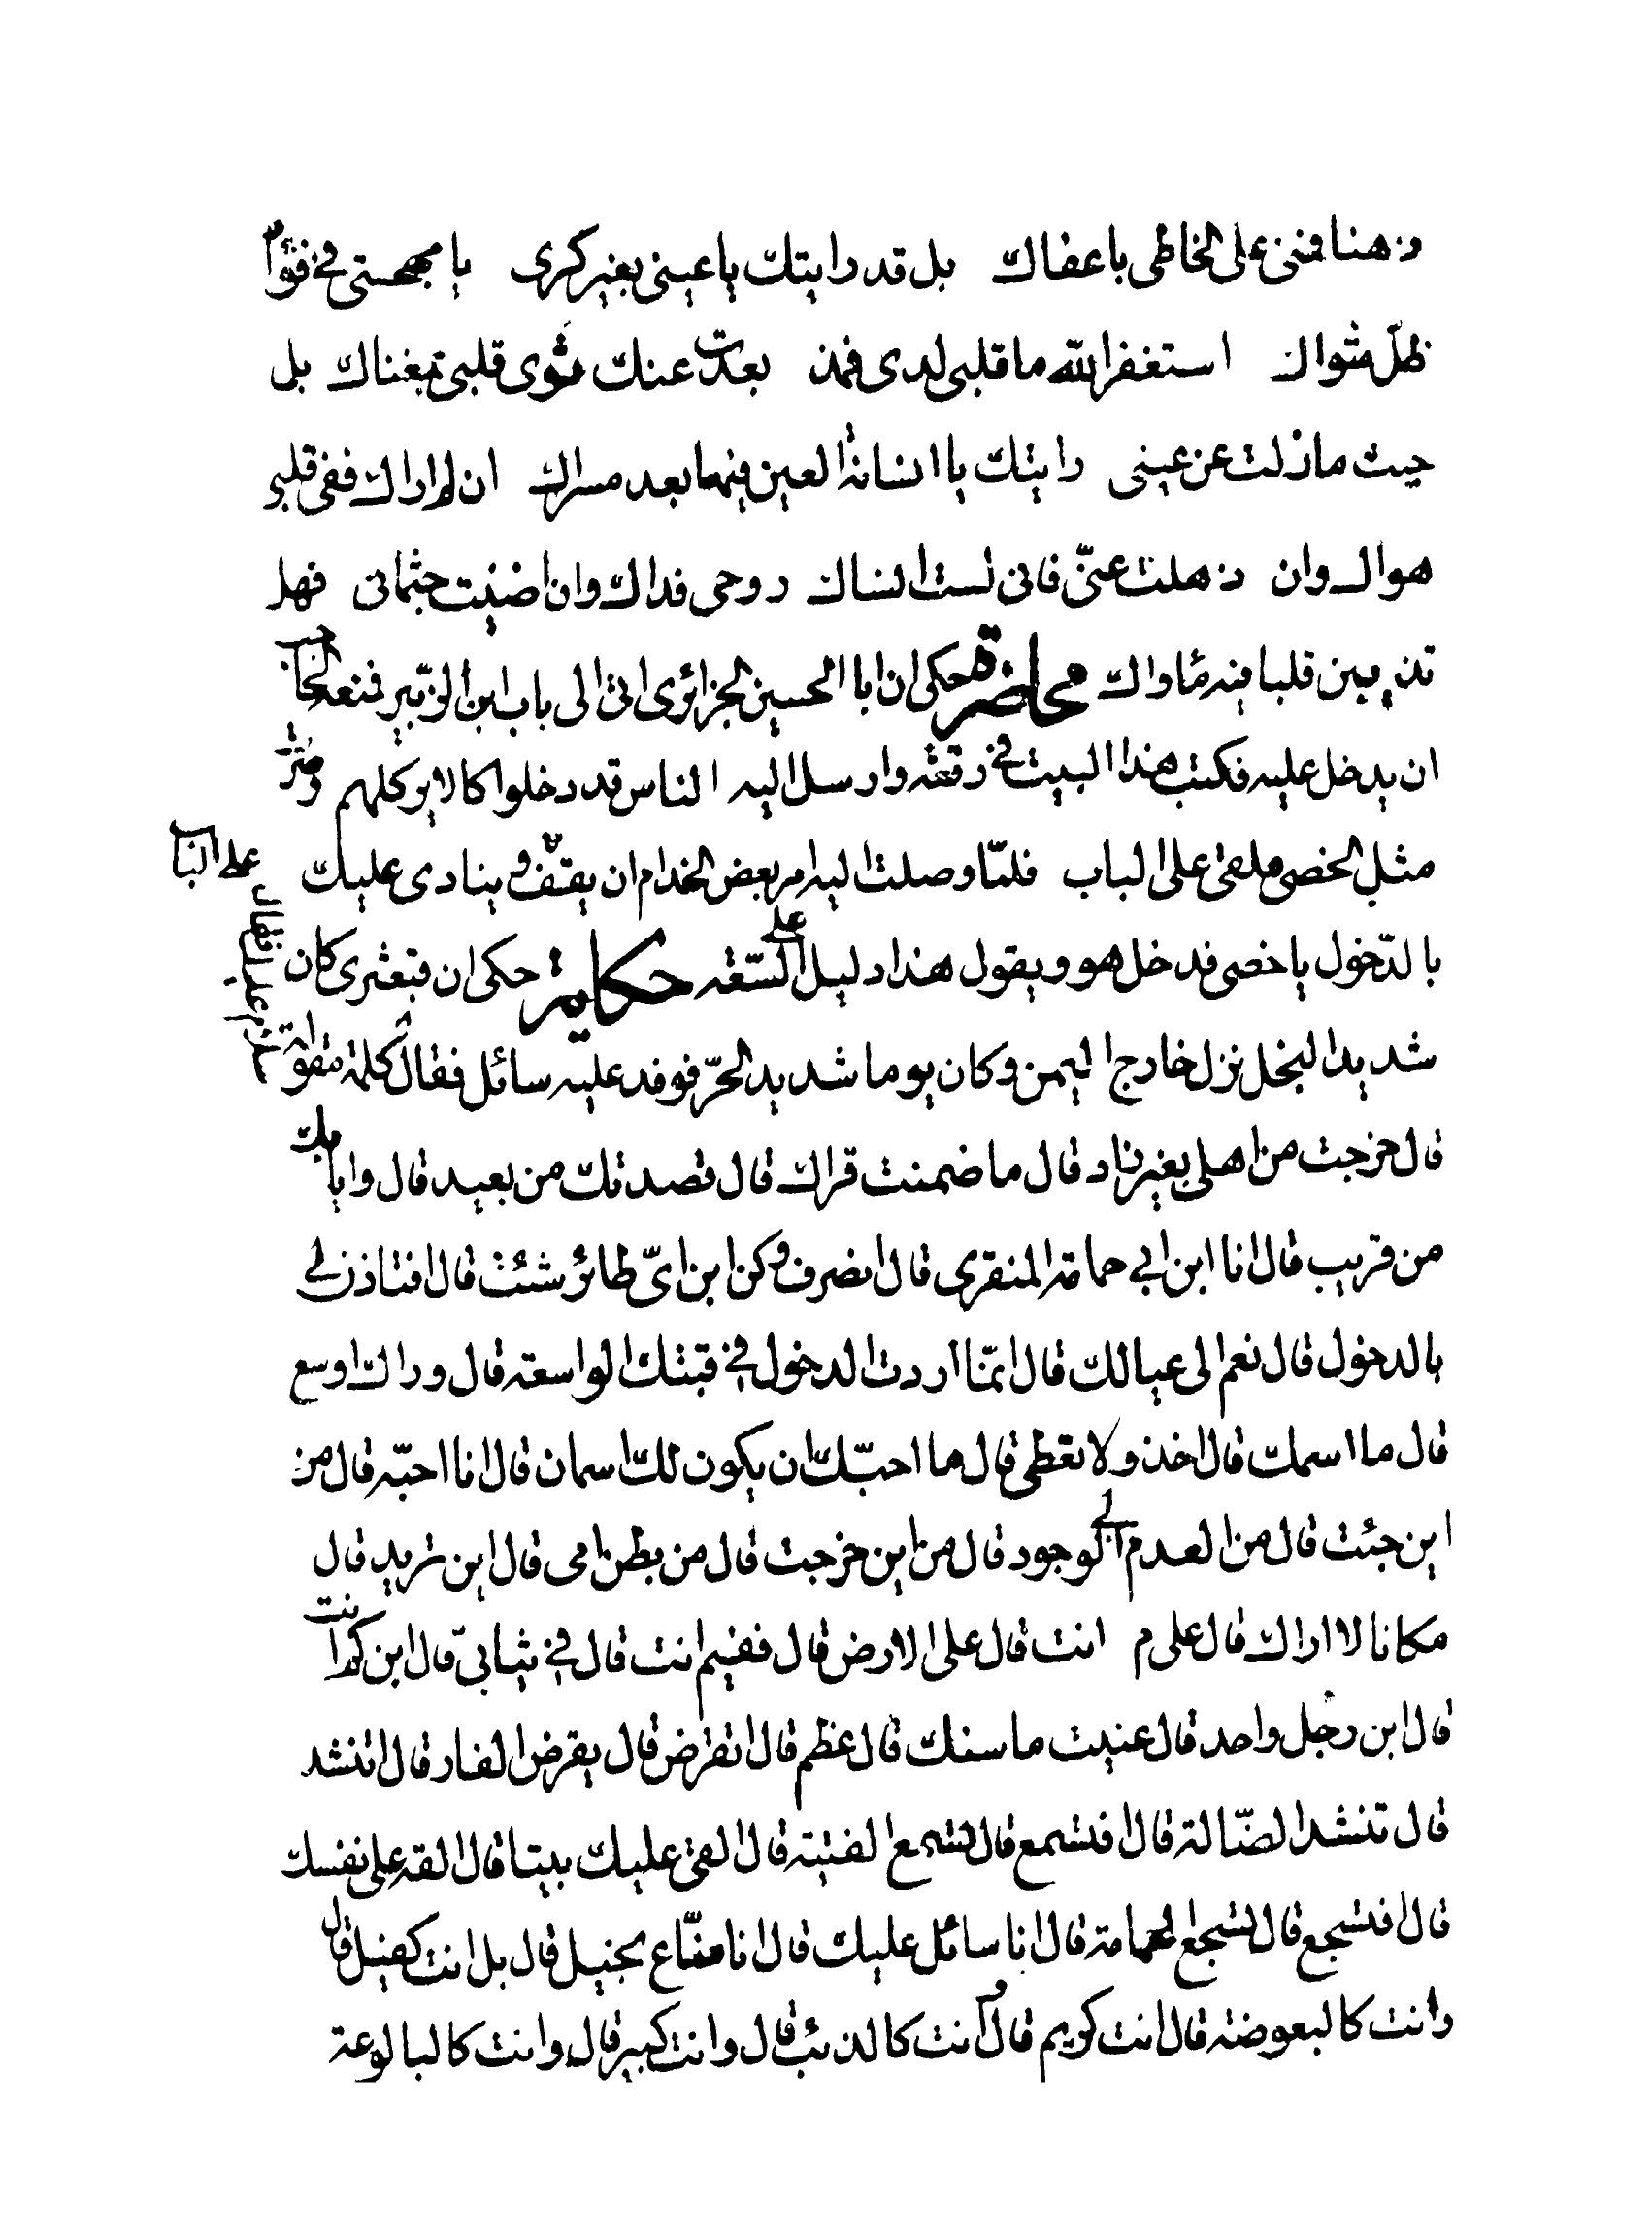 ذهنا فمنى على الخاطى باعفاك بل قد رايتك يا عينى بغير كرى يا مهجتى فى فؤا
ظل مثواك استغفر الله ما قلبى لدى فمذ بعدت عنك ثوى قلبى بمغناك بل
حيث مازلت عن عينى رايتك يا انسانة العين فيها بعد مسراك ان لم اراك ففى قلبى
هواك وان ذهلت عنّى فانى لست انساك روحى فداك وان اضنيت جثمانى فهل
تذيبين قلبا فيه مأواك محاضرة حكى ان ابا الحسين الجزائرى اتى الى باب ابن الزبير فمنعه الحاجب
ان يدخل عليه فكتب هذا البيت فى رقعة وارسل اليه الناس قد دخلوا كالاير كلهم
مثل الخصى ملقى على الباب فلمّا وصلت اليه امر بعض الخدام ان يقف وينادى عليك
على الباب
بالدّخول يا خصى فدخل هو ويقول هذا دليل على السّعه حكاية حكى ان كان
شديد البخل نزل خارج اليمن وكان يوما شديد الحرّ فوفد عليه سائل فقال كلمة مقولة
قال خرجت من اهلى بغير زاد قال ما ضمنت قراك قال قصدتك من بعيد قال وايابك
من قريب قال انا ابن ابى حمامة المنقرى قال انصرف وكن ابن اىّ طائر شئت قال افتاذن لى
بالدخول قال نعم الى عيالك قال انمّا اردت الدخول فى قبتك الواسعة قال وراك اوسع
قال ما اسمك قال اخذ ولا تعطى قال ما احبّك ان يكون لك اسمان قال انا احبّه قال من
اين جئت قال من العدم الى الوجود قال من اين خرجت قال من بطن امى قال اين تريد قال
مكانا لا اراك قال على م انت قال على الارض قال ففيم انت قال فى ثيابى قال ابن كم انت
قال ابن رجل واحد قال عنيت ما سنك قال عظم قال اتقرض قال يقرض الفار قال اتنشد
قال تنشد الضّالة قال افتسمع قال تسمع الفتية قال القى عليك بيتا قال القه على نفسك
قال افتسجع قال تسجع الحمامة قال انا سائل عليك قال انا منّاع بخيل قال بل انت كفيل قال
وانت كالبعوضة قال انت كريم قال انت كالذئب قال وانت كبير قال وانت كالبالوعة